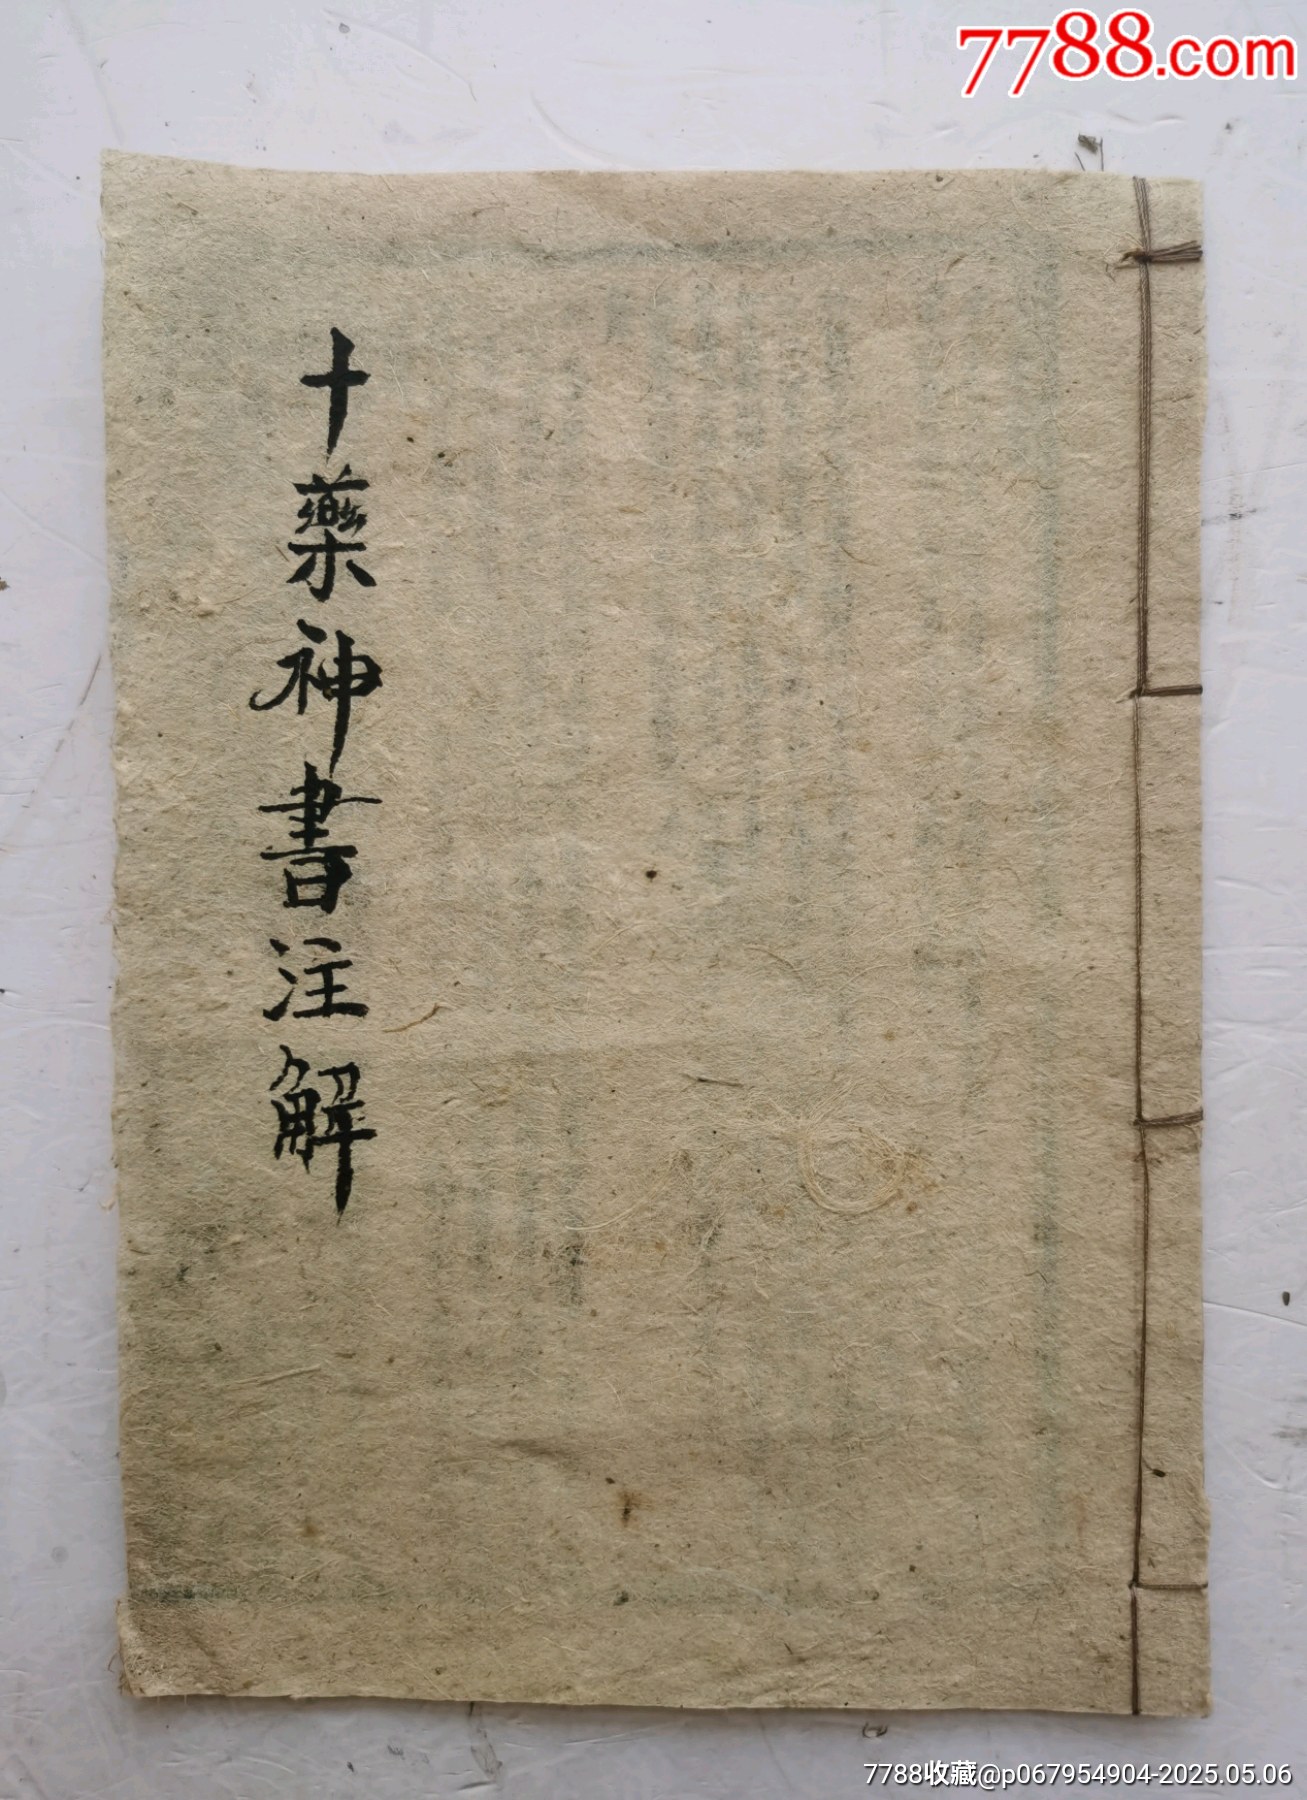 7788.com
十藥神書注解
7788收藏@p067954904-2025.05.06